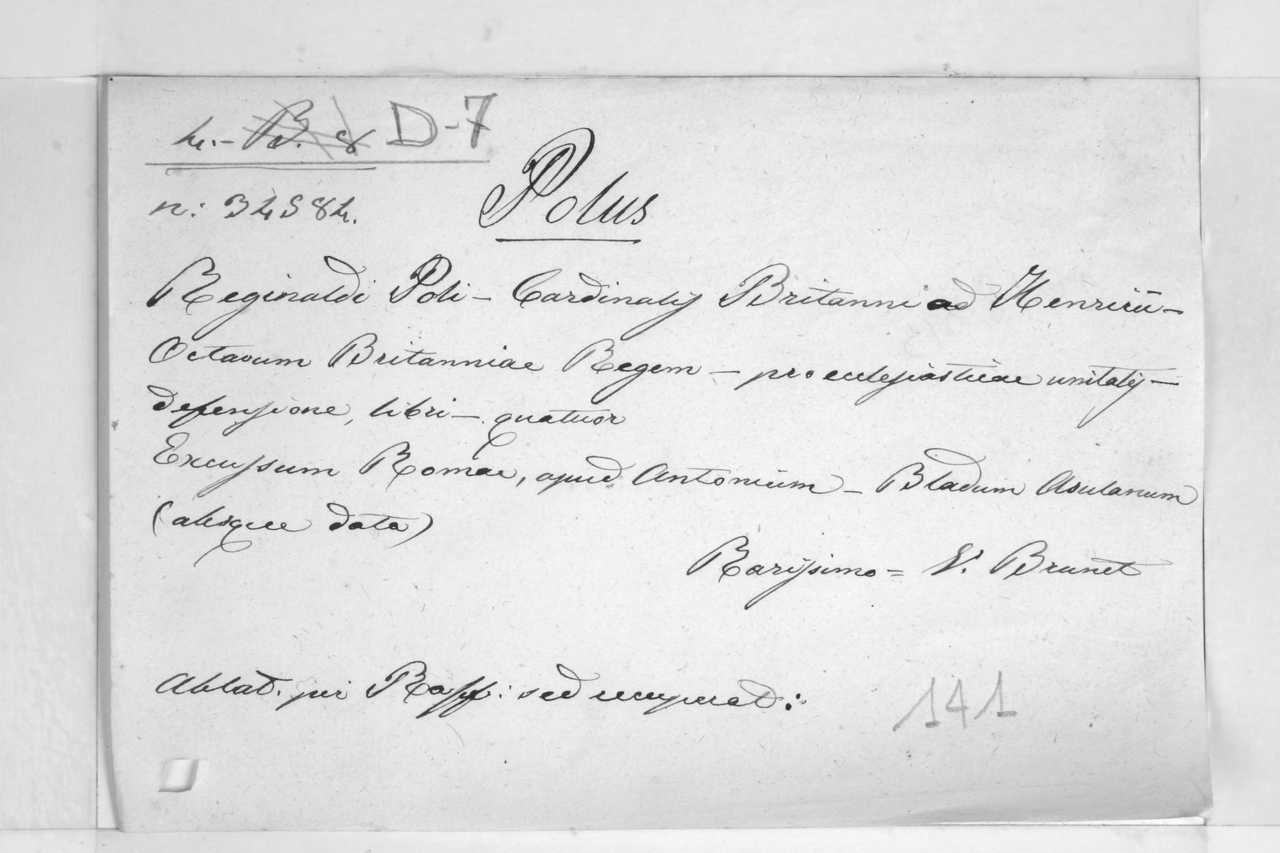 h.- B. 8 D-7
n: 34584.
Polus
Reginaldi Poli - Cardinalis Britanni ad Henricū -
Octavum Britanniae Regem - pro ecclesiasticae unitatis -
defensione, libri - quatuor
Excussum Romae, apud Antonium - Bladum Asulanum
(absque data)
Rarissimo = V. Brunet
Ablat. per Raff: sed recuperat:
141